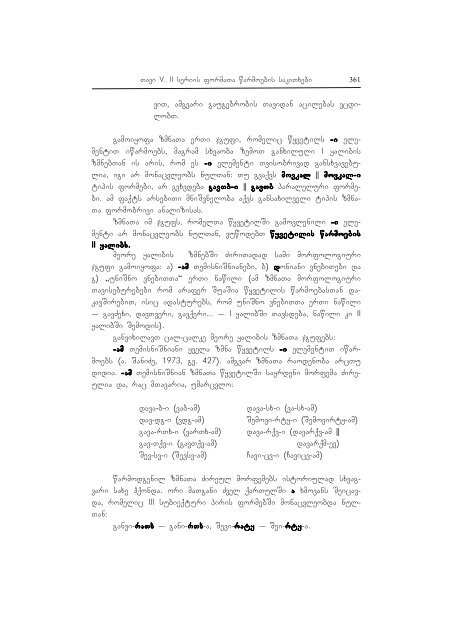 თავი V. II სერიის ფორმათა წარმოების საკითხები 361
ვით, ამგვარი გაუგებრობის თავიდან აცილებას ვცდი-
ლობთ.
გამოიყოფა ზმნათა ერთი ჯგუფი, რომელიც წყვეტილს -ი ელე-
მენტით იწარმოებს, მაგრამ სხვაობა ზემოთ განხილული I ყალიბის
ზმნებთან ის არის, რომ ეს -ი ელემენტი თვისობრივად განსხვავებუ-
ლია, იგი არ მონაცვლეობს ნულთან: თუ გვაქვს მოვკალ || მოვკალ-ი
ტიპის ფორმები, არ გვხვდება გავთბ-ი || გავთბ პარალელური ფორმე-
ბი. ამ ფაქტს არსებითი მნიშვნელობა აქვს განსახილველი ტიპის ზმნა-
თა ფორმობრივი ანალიზისას.
ზმნათა იმ ჯგუფს, რომელთა წყვეტილში გამოვლენილი -ი ელე-
მენტი არ მონაცვლეობს ნულთან, ვუწოდებთ წყვეტილის წარმოების
II ყალიბს.
მეორე ყალიბის ზმნებში ძირითადად სამი მორფოლოგიური
ჯგუფი გამოიყოფა: ა) -ამ თემისნიშნიანები, ბ) დონიანი ვნებითები და
გ) „უნიშნო ვნებითთა“ ერთი ნაწილი (ამ ზმნათა მორფოლოგიური
თავისებურებები რომ არაფერ შუაშია წყვეტილის წარმოებასთან და-
კავშირებით, ისიც ადასტურებს, რომ უნიშნო ვნებითთა ერთი ნაწილი
— გავძეხი, დავთვერი, გავქერი... — I ყალიბში თავსდება, ნაწილი კი II
ყალიბში შემოდის).
განვიხილავთ ცალ-ცალკე მეორე ყალიბის ზმნათა ჯგუფებს:
-ამ თემისნიშნიანი ყველა ზმნა წყვეტილს -ი ელემენტით იწარ-
მოებს (ა. შანიძე, 1973, გვ. 427). ამგვარ ზმნათა რაოდენობა არცთუ
დიდია. -ამ თემისნიშნიან ზმნათა წყვეტილში საყრდენი მორფემა ძირე-
ულია და, რაც მთავარია, უმარცვლო:
დავა-ბ-ი (ვაბ-ამ) დავა-სხ-ი (ვა-სხ-ამ)
დავ-დგ-ი (ვდგ-ამ) შემოვი-რტყ-ი (შემოვირტყ-ამ)
გავა-რთხ-ი (ვართხ-ამ) დავა-რქვ-ი (დავარქვ-ამ ||
გავ-თქვ-ი (გავთქვ-ამ) დავარქმ-ევ)
შევ-სვ-ი (შევსვ-ამ) ჩავი-ცვ-ი (ჩავიცვ-ამ)
წარმოდგენილ ზმნათა ძირეულ მორფემებს ისტორიულად სხვაგ-
ვარი სახე ჰქონდა. ორი მათგანი ძველ ქართულში ა ხმოვანს შეიცავ-
და, რომელიც III სუბიექტური პირის ფორმებში მონაცვლეობდა ნულ-
თან:
განვი-რათხ — განი-რთხ-ა, შევი-რატყ — შეი-რტყ-ა.